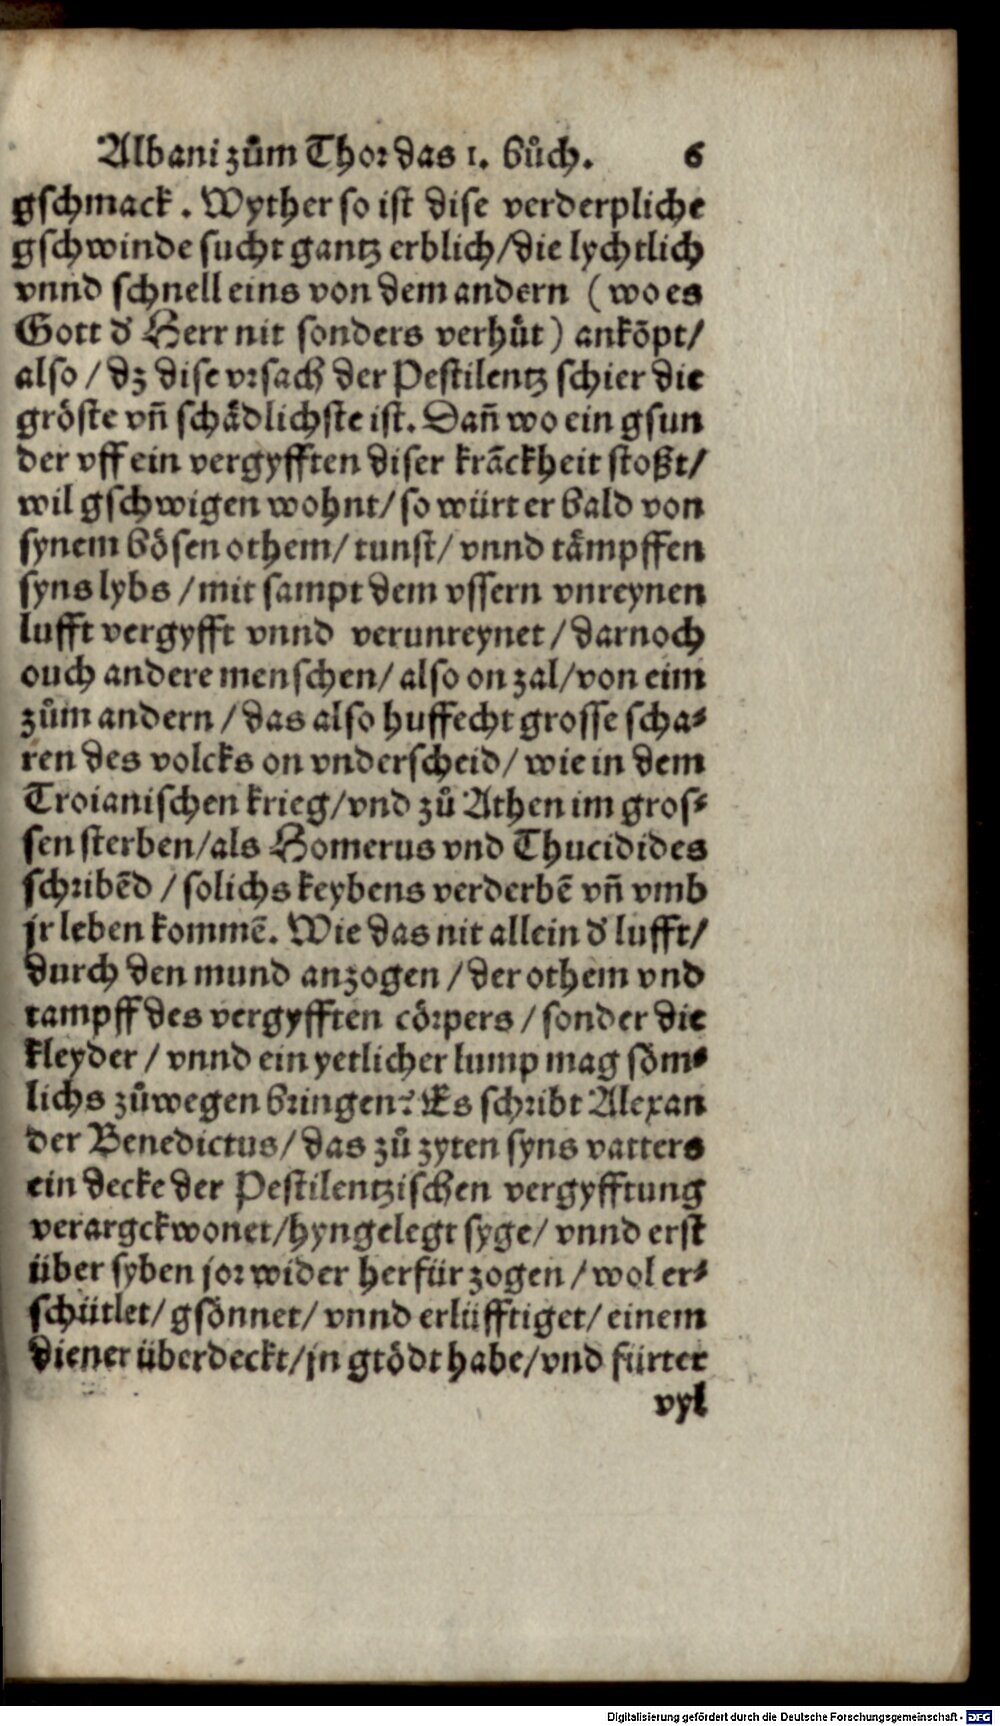 Albani zům Thor das 1. bůch. 6
gschmack. Wyther so ist dise verderpliche
gschwinde sucht gantz erblich/die lychtlich
vnnd schnell eins von dem andern (wo es
Gott d' Herr nit sonders verhůt) ankōpt/
also/dz dise vrsach der Pestilentz schier die
gröste vñ schådlichste ist. Dañ wo ein gsun
der vff ein vergyfften diser krāckheit stoßt/
wil gschwigen wohnt/so würt er bald von
synem bösen othem/tunst/vnnd tåmpffen
syns lybs/mit sampt dem vssern vnreynen
lufft vergyfft vnnd verunreynet/darnoch
ouch andere menschen/also on zal/von eim
zům andern/das also huffecht grosse scha⸗
ren des volcks on vnderscheid/wie in dem
Troianischen krieg/vnd zů Athen im gros⸗
sen sterben/als Homerus vnd Thucidides
schribēd/solichs keybens verderbē vñ vmb
jr leben kommē. Wie das nit allein d' lufft/
durch den mund anzogen/der othem vnd
tampff des vergyfften cörpers/sonder die
kleyder/vnnd ein yetlicher lump mag söm⸗
lichs zůwegen bringen? Es schribt Alexan
der Benedictus/das zů zyten syns vatters
ein decke der Pestilentzischen vergyfftung
verargckwonet/hyngelegt syge/vnnd erst
über syben jor wider herfür zogen/wol er⸗
schütlet/gsönnet/vnnd erlüfftiget/einem
diener überdeckt/jn gtödt habe/vnd fürter
vyl
Digitalisierung gefördert durch die Deutsche Forschungsgemeinschaft - DFG